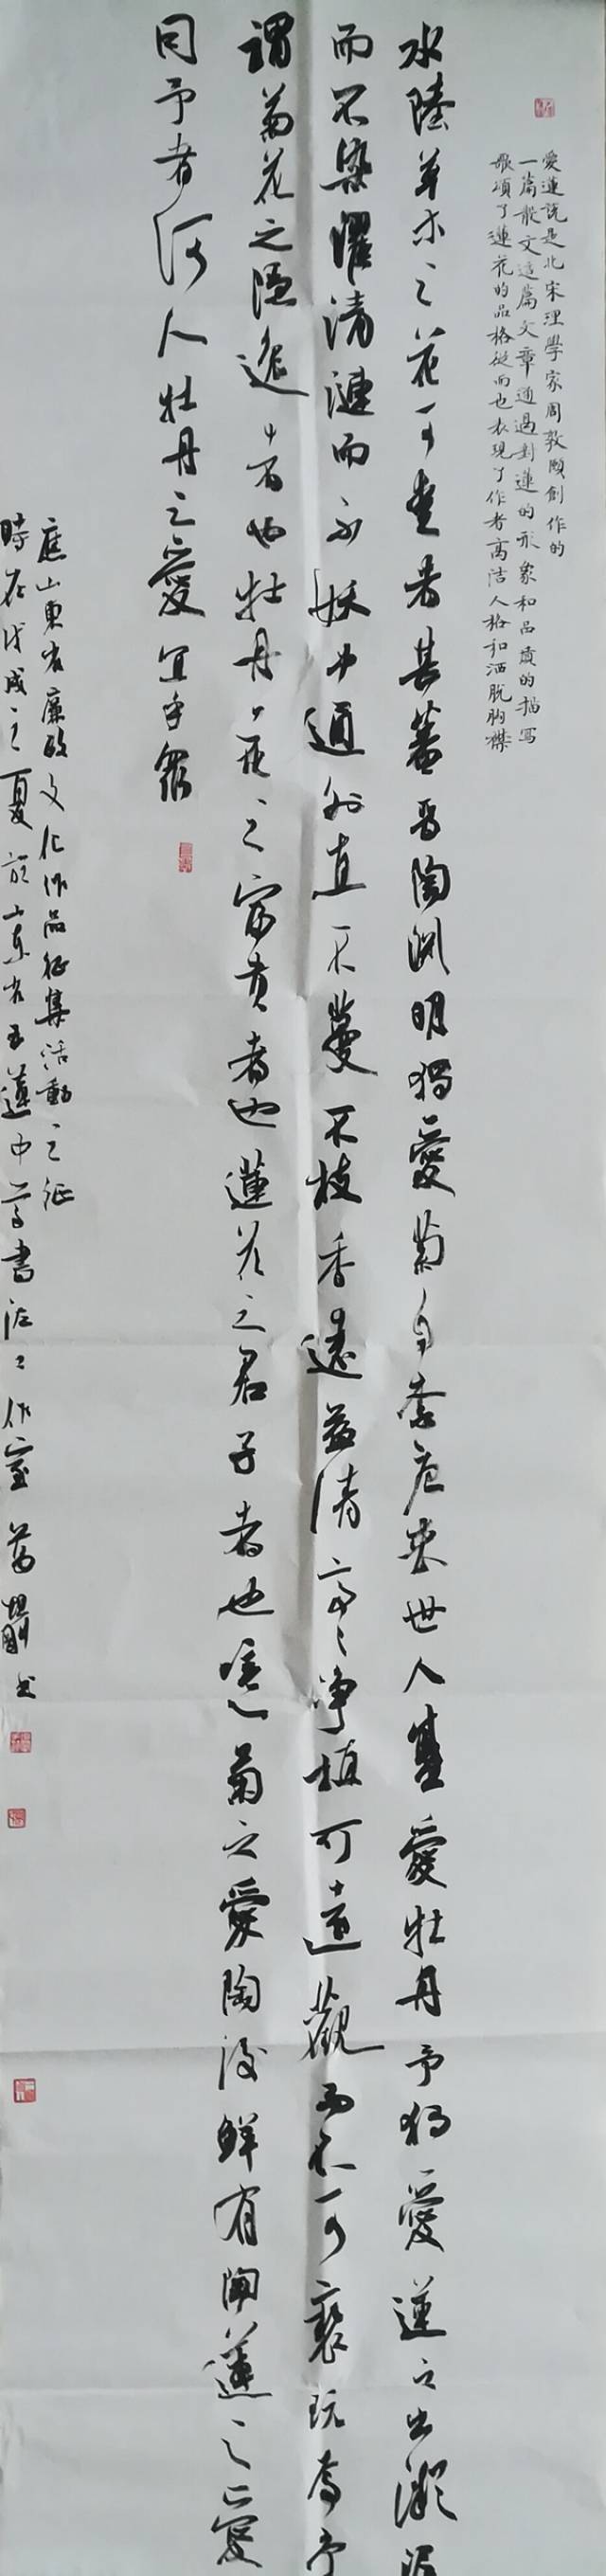 愛蓮說是北宋理學家周敦頤創作的
一篇散文這篇文章通過對蓮的形象和品質的描寫
歌頌了蓮花的品格從而也表現了作者高潔人格和洒脫胸襟
水陸草木之花可愛者甚蕃晉陶渊明獨愛菊自李唐来世人甚愛牡丹予獨愛蓮之出淤泥
而不染濯清漣而不妖中通外直不蔓不枝香遠益清亭亭净植可遠觀而不可褻玩焉予
謂菊花之隱逸者也牡丹花之富貴者也蓮花之君子者也噫菊之愛陶後鮮有聞蓮之愛
同予者何人牡丹之愛宜乎眾
應山東省廉政文化作品征集活動之征
時在戊戌之夏於山東省五蓮中等書法工作室